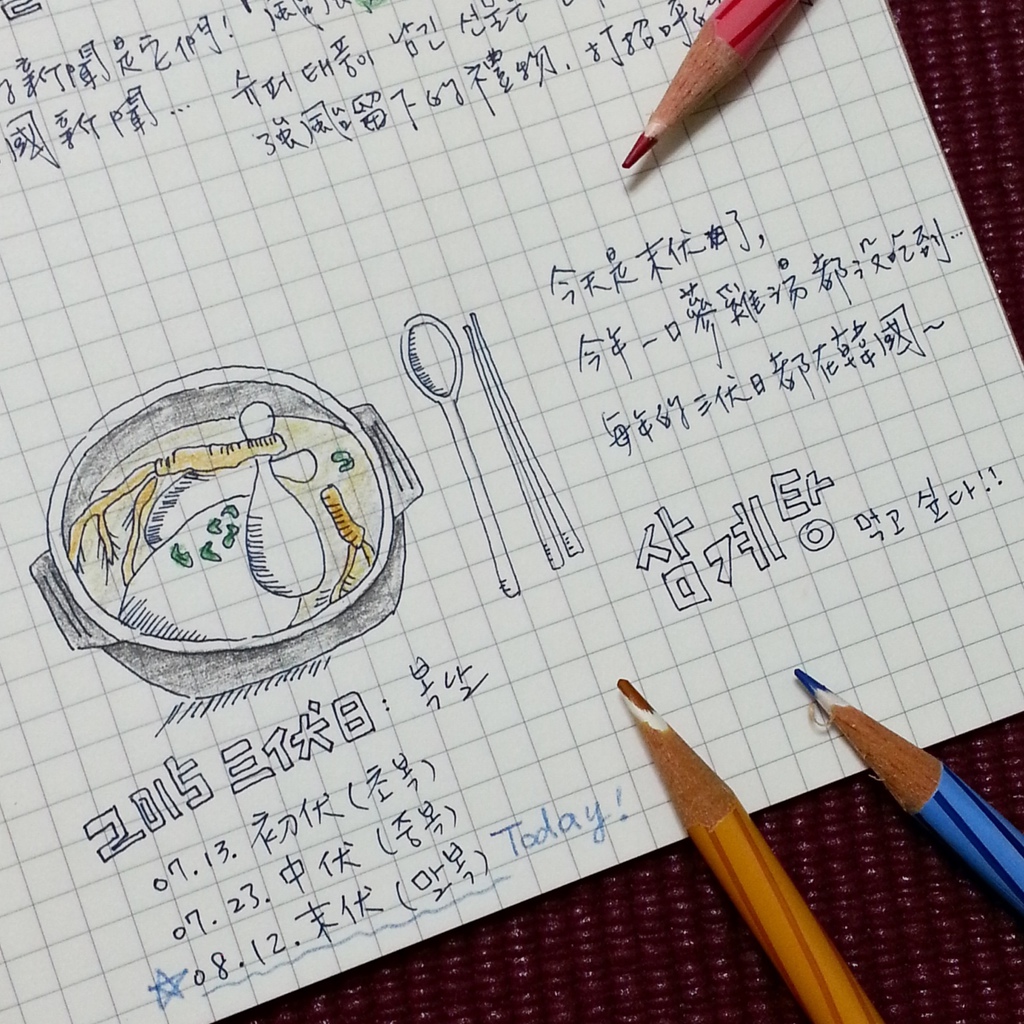 新聞是它們!
國新聞...
슈퍼 태풍이 남긴 선물은
強風留下的禮物,打招呼
今天是末伏了,
今年一口蔘雞湯都沒吃到...
每年的三伏日都在韓國~
삼계탕 먹고 싶다!!
2015 三伏日: 복날
07.13. 初伏 (초복)
07.23. 中伏 (중복)
☆08.12. 末伏 (말복) Today!